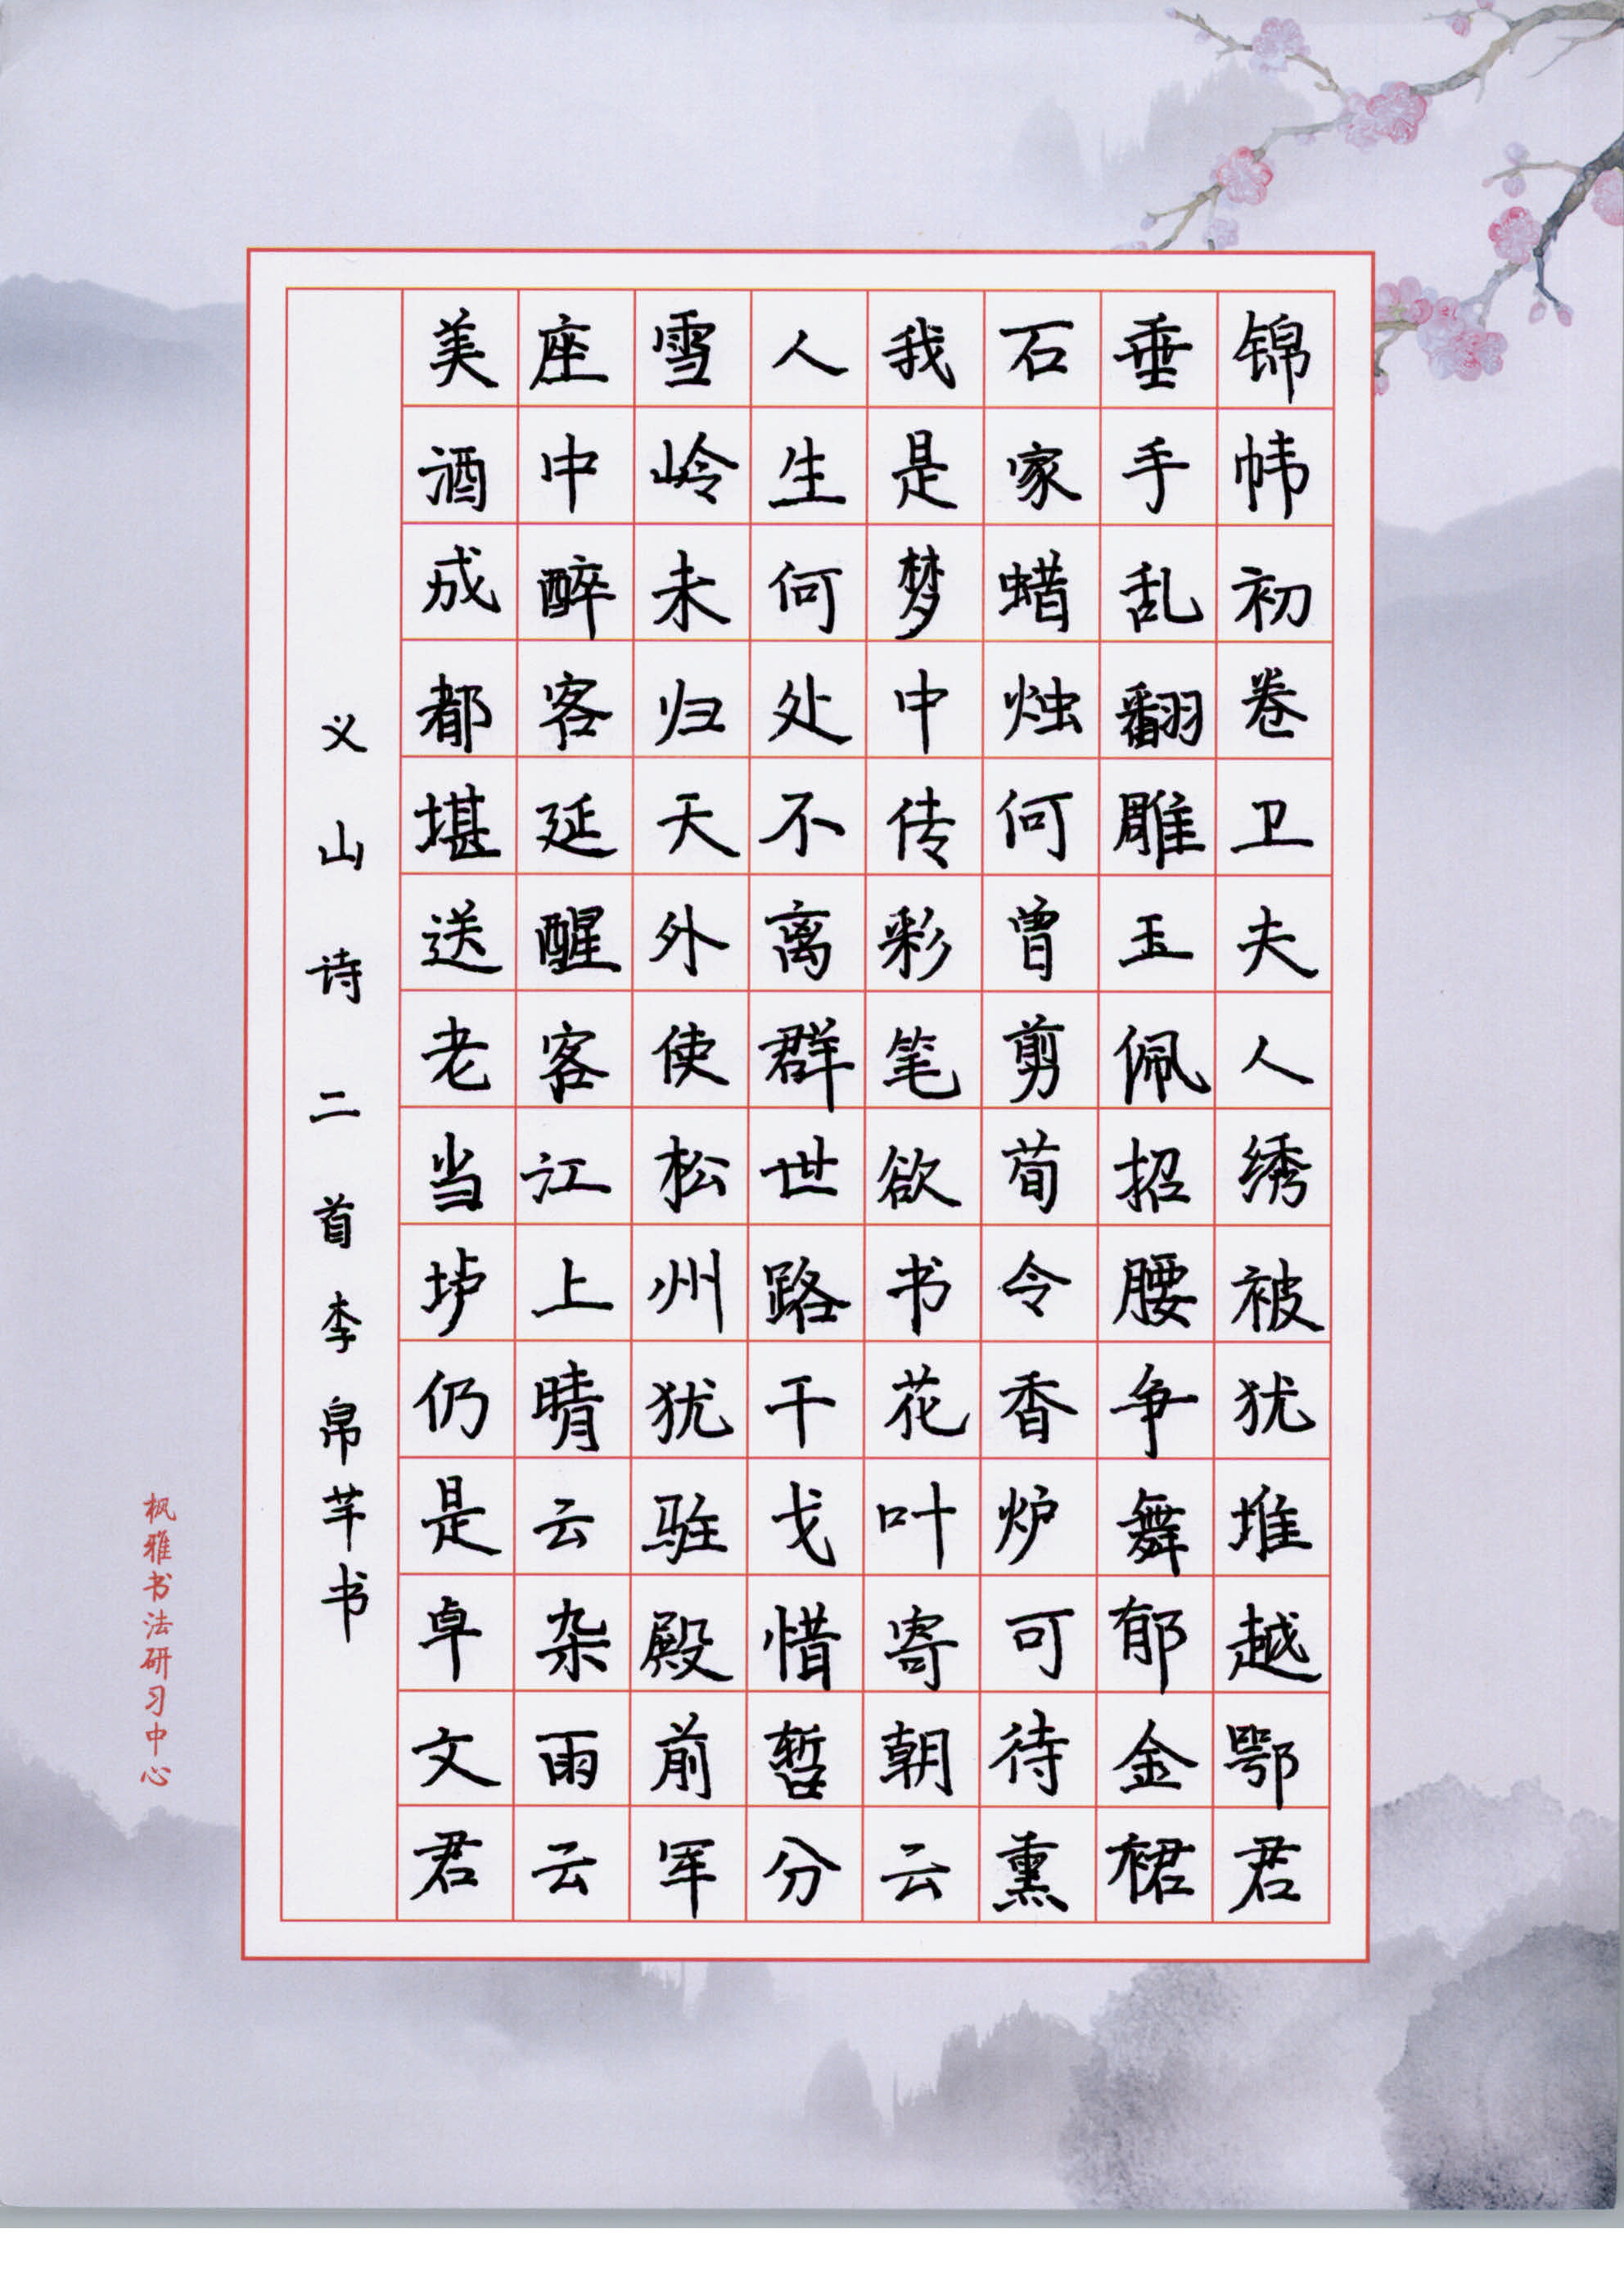 锦帏初卷卫夫人绣被犹堆越鄂君
垂手乱翻雕玉佩招腰争舞郁金裙
石家蜡烛何曾剪荀令香炉可待熏
我是梦中传彩笔欲书花叶寄朝云
人生何处不离群世路干戈惜暂分
雪岭未归天外使松州犹驻殿前军
座中醉客延醒客江上晴云杂雨云
美酒成都堪送老当垆仍是卓文君
义山诗二首李帛芊书
枫雅书法研习中心